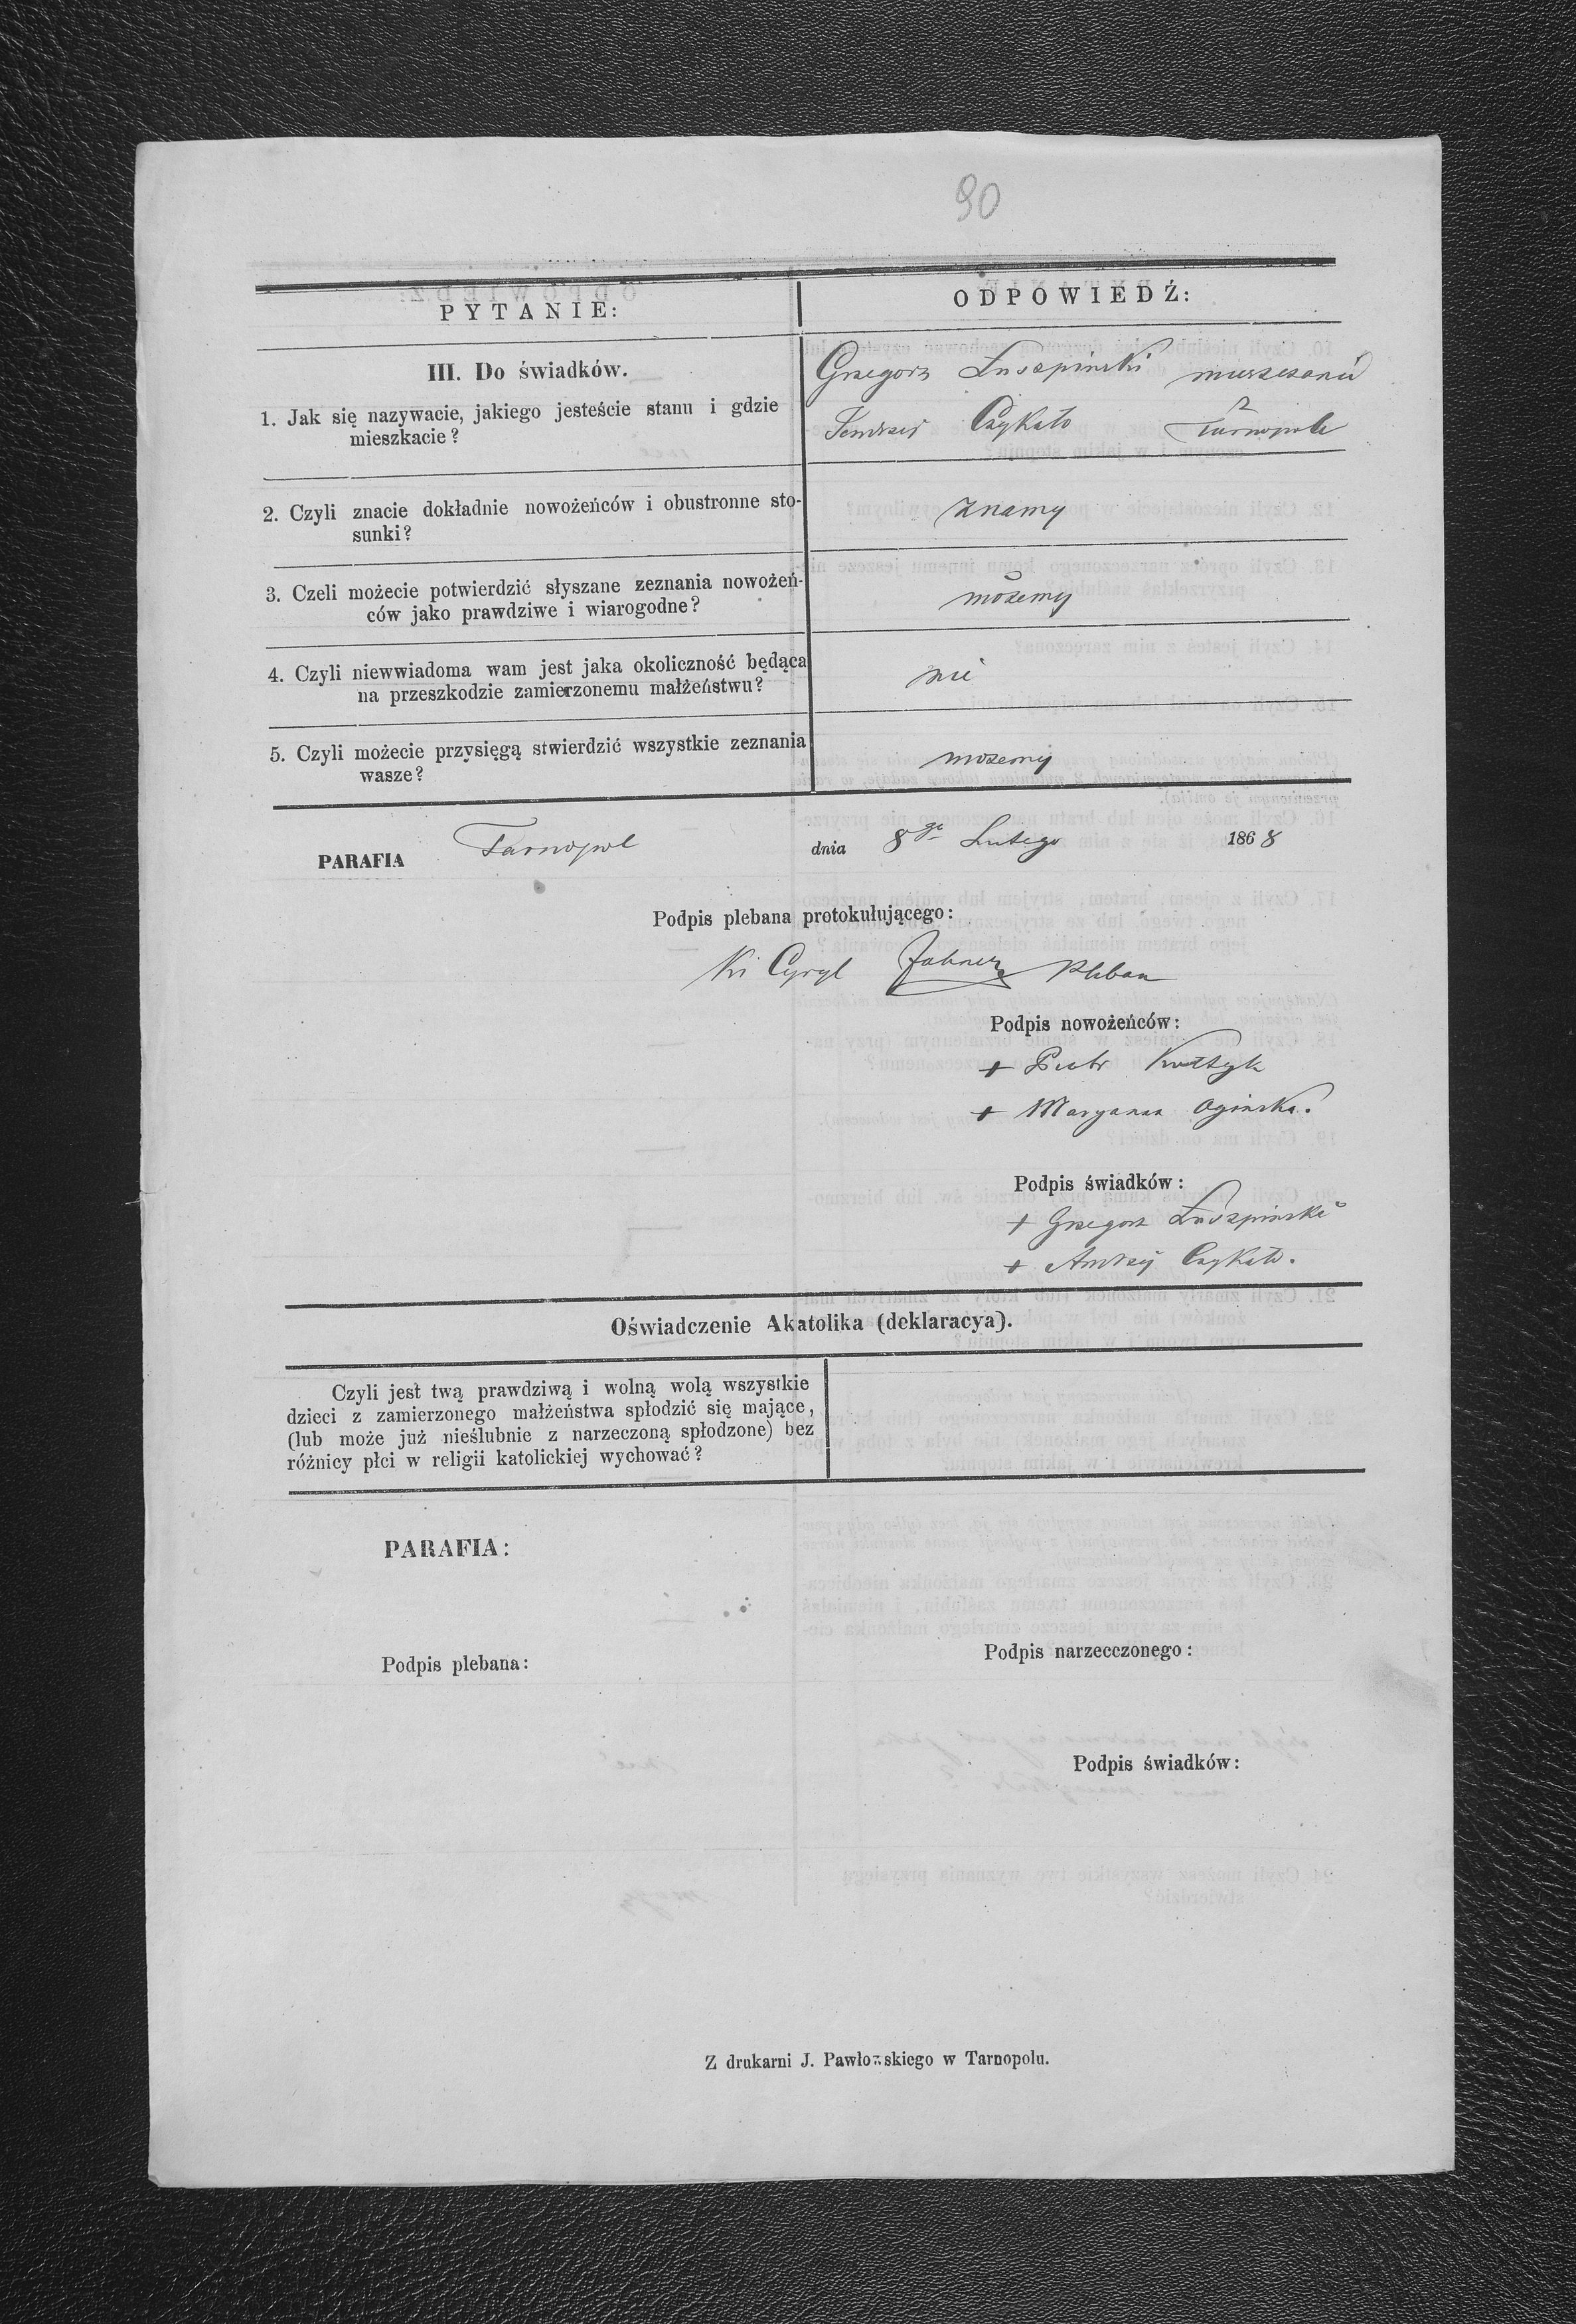 90
PYTANIE:
ODPOWIEDŹ:
III. Do świadków.
1. Jak się nazywacie, jakiego jesteście stanu i gdzie
mieszkacie?
Grzegorz
Czykało
2. Czyli znacie dokładnie nowożeńców i obustronne sto-
sunki?
znamy
3. Czeli możecie potwierdzić słyszane zeznania nowożeń-
ców jako prawdziwe i wiarogodne?
możemy
4. Czyli niewwiadoma wam jest jaka okoliczność będąca
na przeszkodzie zamierzonemu małżeństwu?
nie
5. Czyli możecie przysięgą stwierdzić wszystkie zeznania
wasze?
możemy
PARAFIA Tarnopol dnia 8go Lutego 1868
Podpis plebana protokułującego:
Cyryl Pleban
Podpis nowożeńców:
+ Piotr
+ Maryanna Oginska.
Podpis świadków:
+ Grzegorz
+ Andrzej Czykało.
Oświadczenie Akatolika (deklaracya).
Czyli jest twą prawdziwą i wolną wolą wszystkie
dzieci z zamierzonego małżeństwa spłodzić się mające,
(lub może już nieślubnie z narzeczoną spłodzone) bez
różnicy płci w religii katolickiej wychować?
PARAFIA:
Podpis plebana:
Podpis narzecczonego:
Podpis świadków:
Z drukarni J. Pawłowskiego w Tarnopolu.